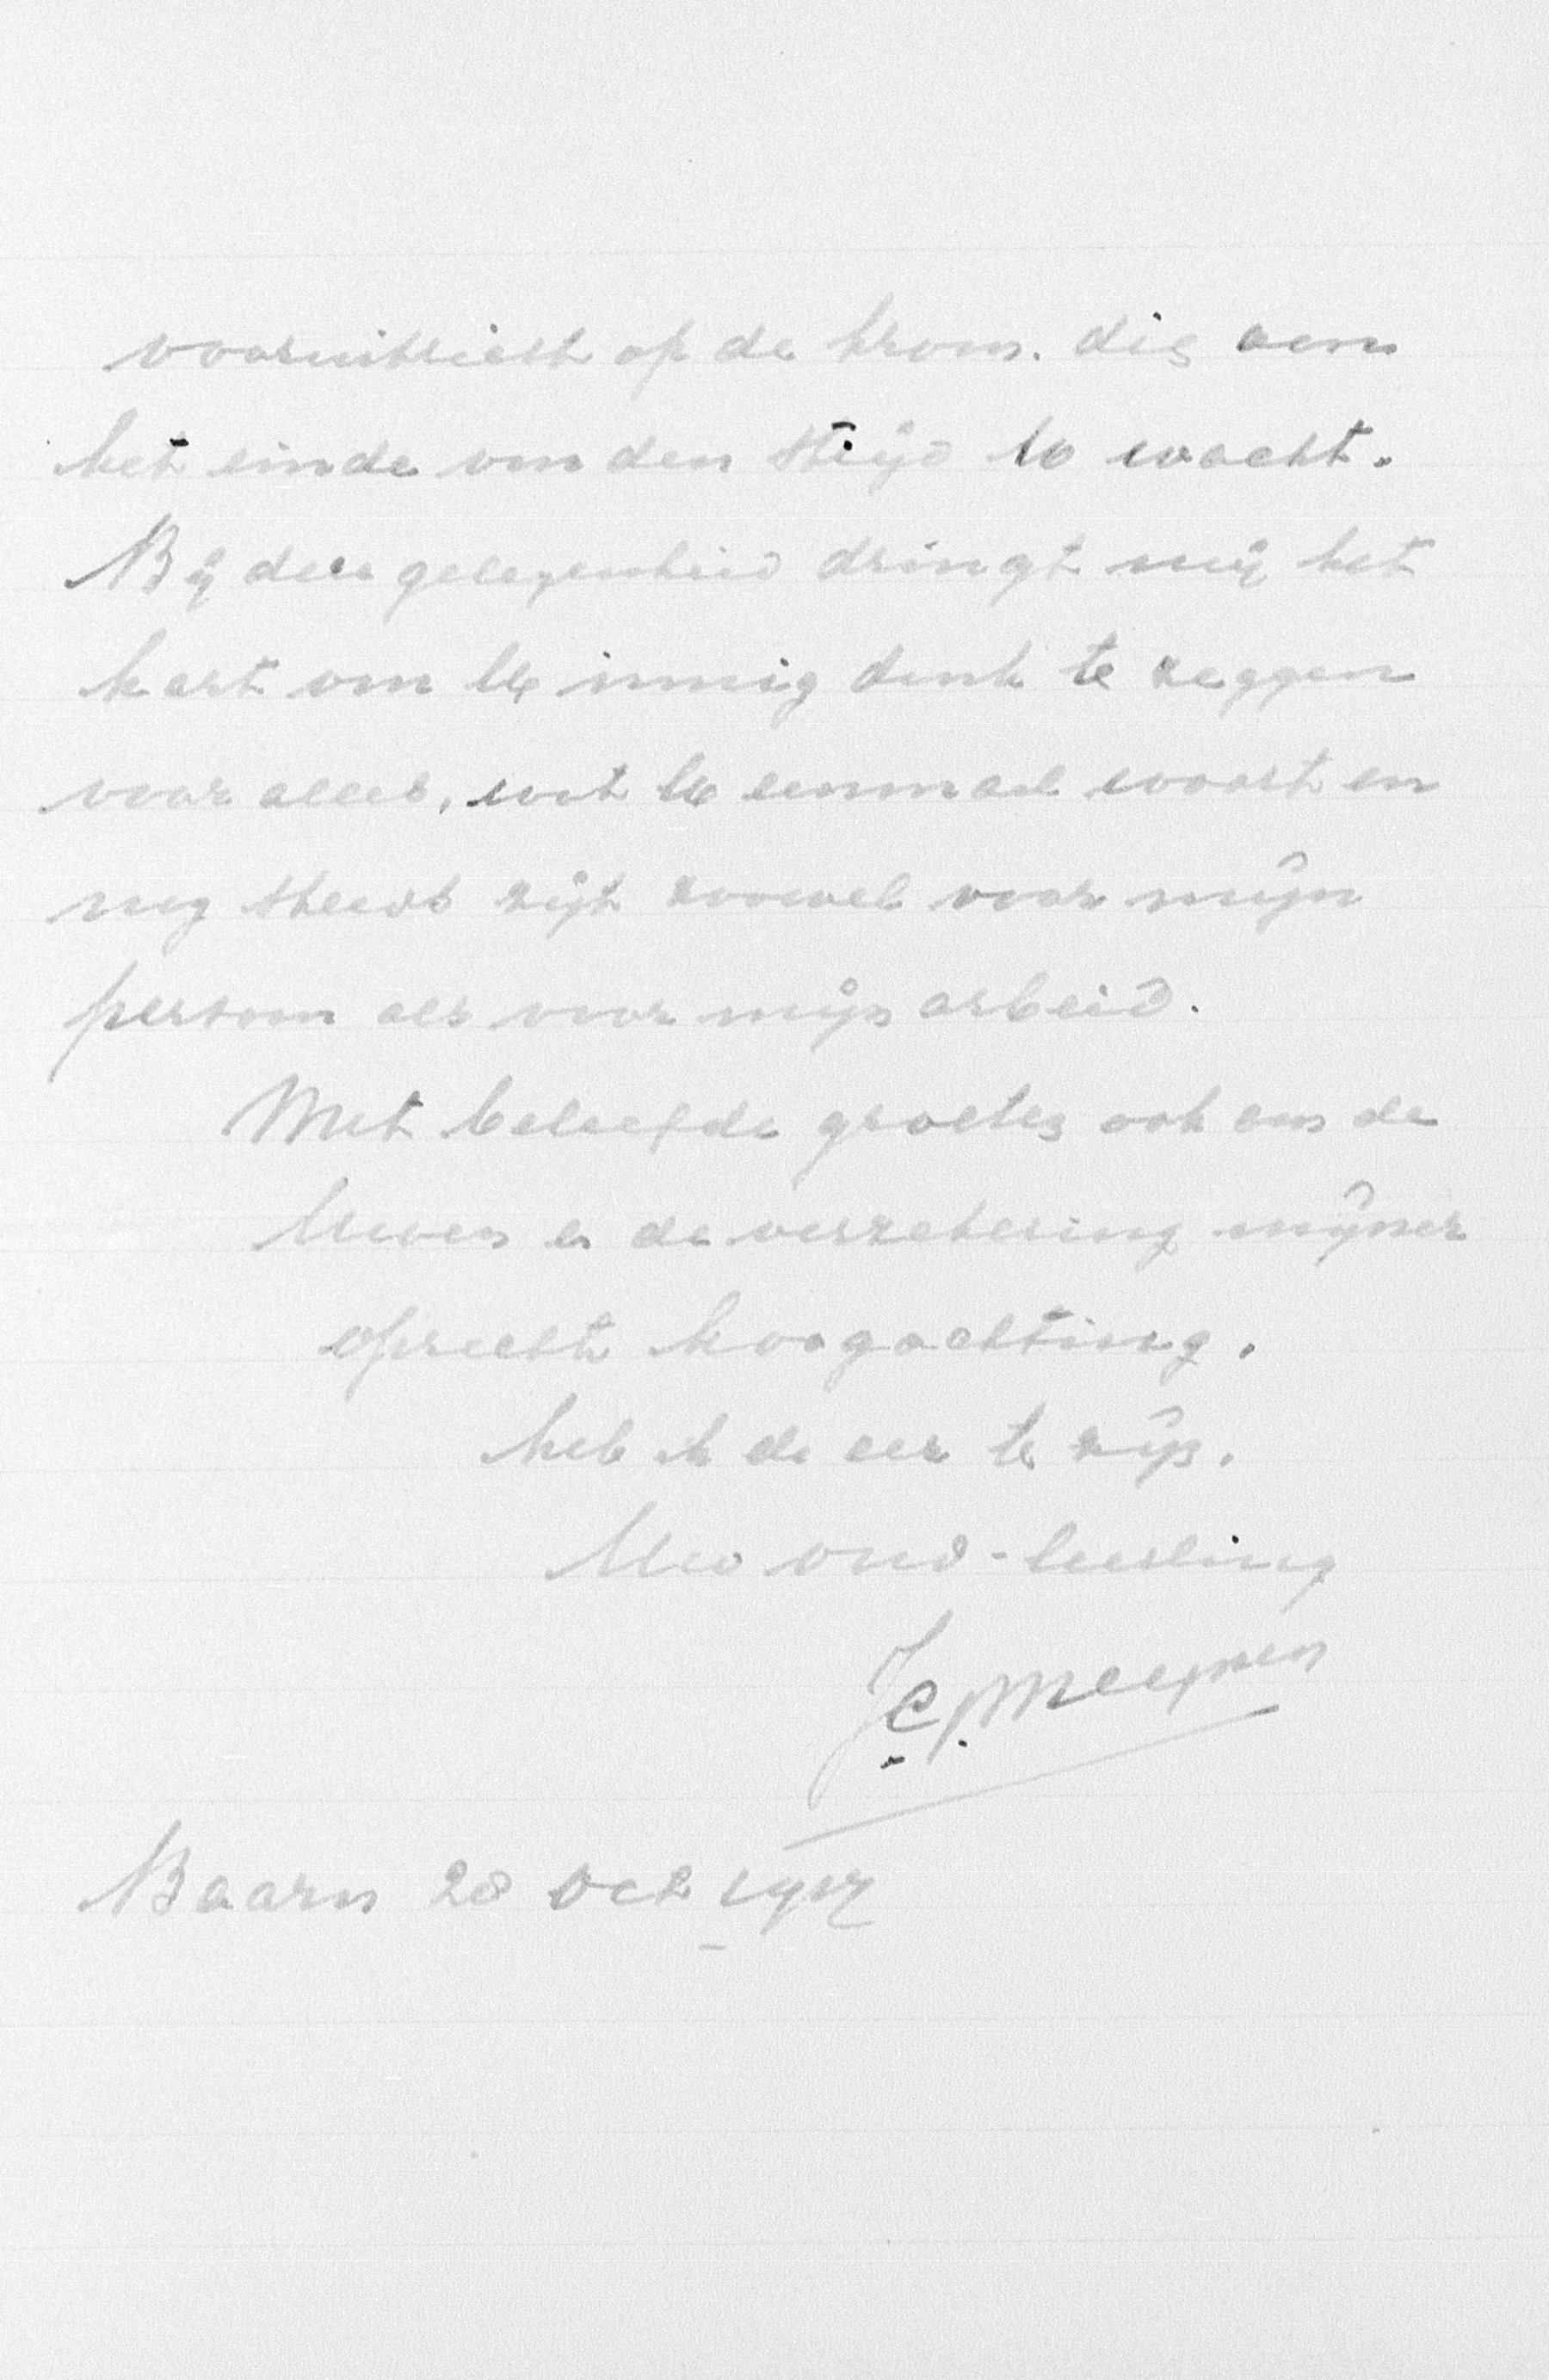 vooruitziet op de kroon. die aan
het einde van den strijd U wacht.
Bij deze gelegenheid dringt mij het
hart om U innig dank te zeggen
voor alles, wat U eenmaal waart en
nog steeds zijt zoowel voor mijn
persoon als voor mijn arbeid.
Met beleefde groeten ook aan de
Uwen en de verzekering mijner
oprecht hoogachting,
heb ik de eer te zijn.
Uw oud-leerling
Baarn 28 Oct 1917